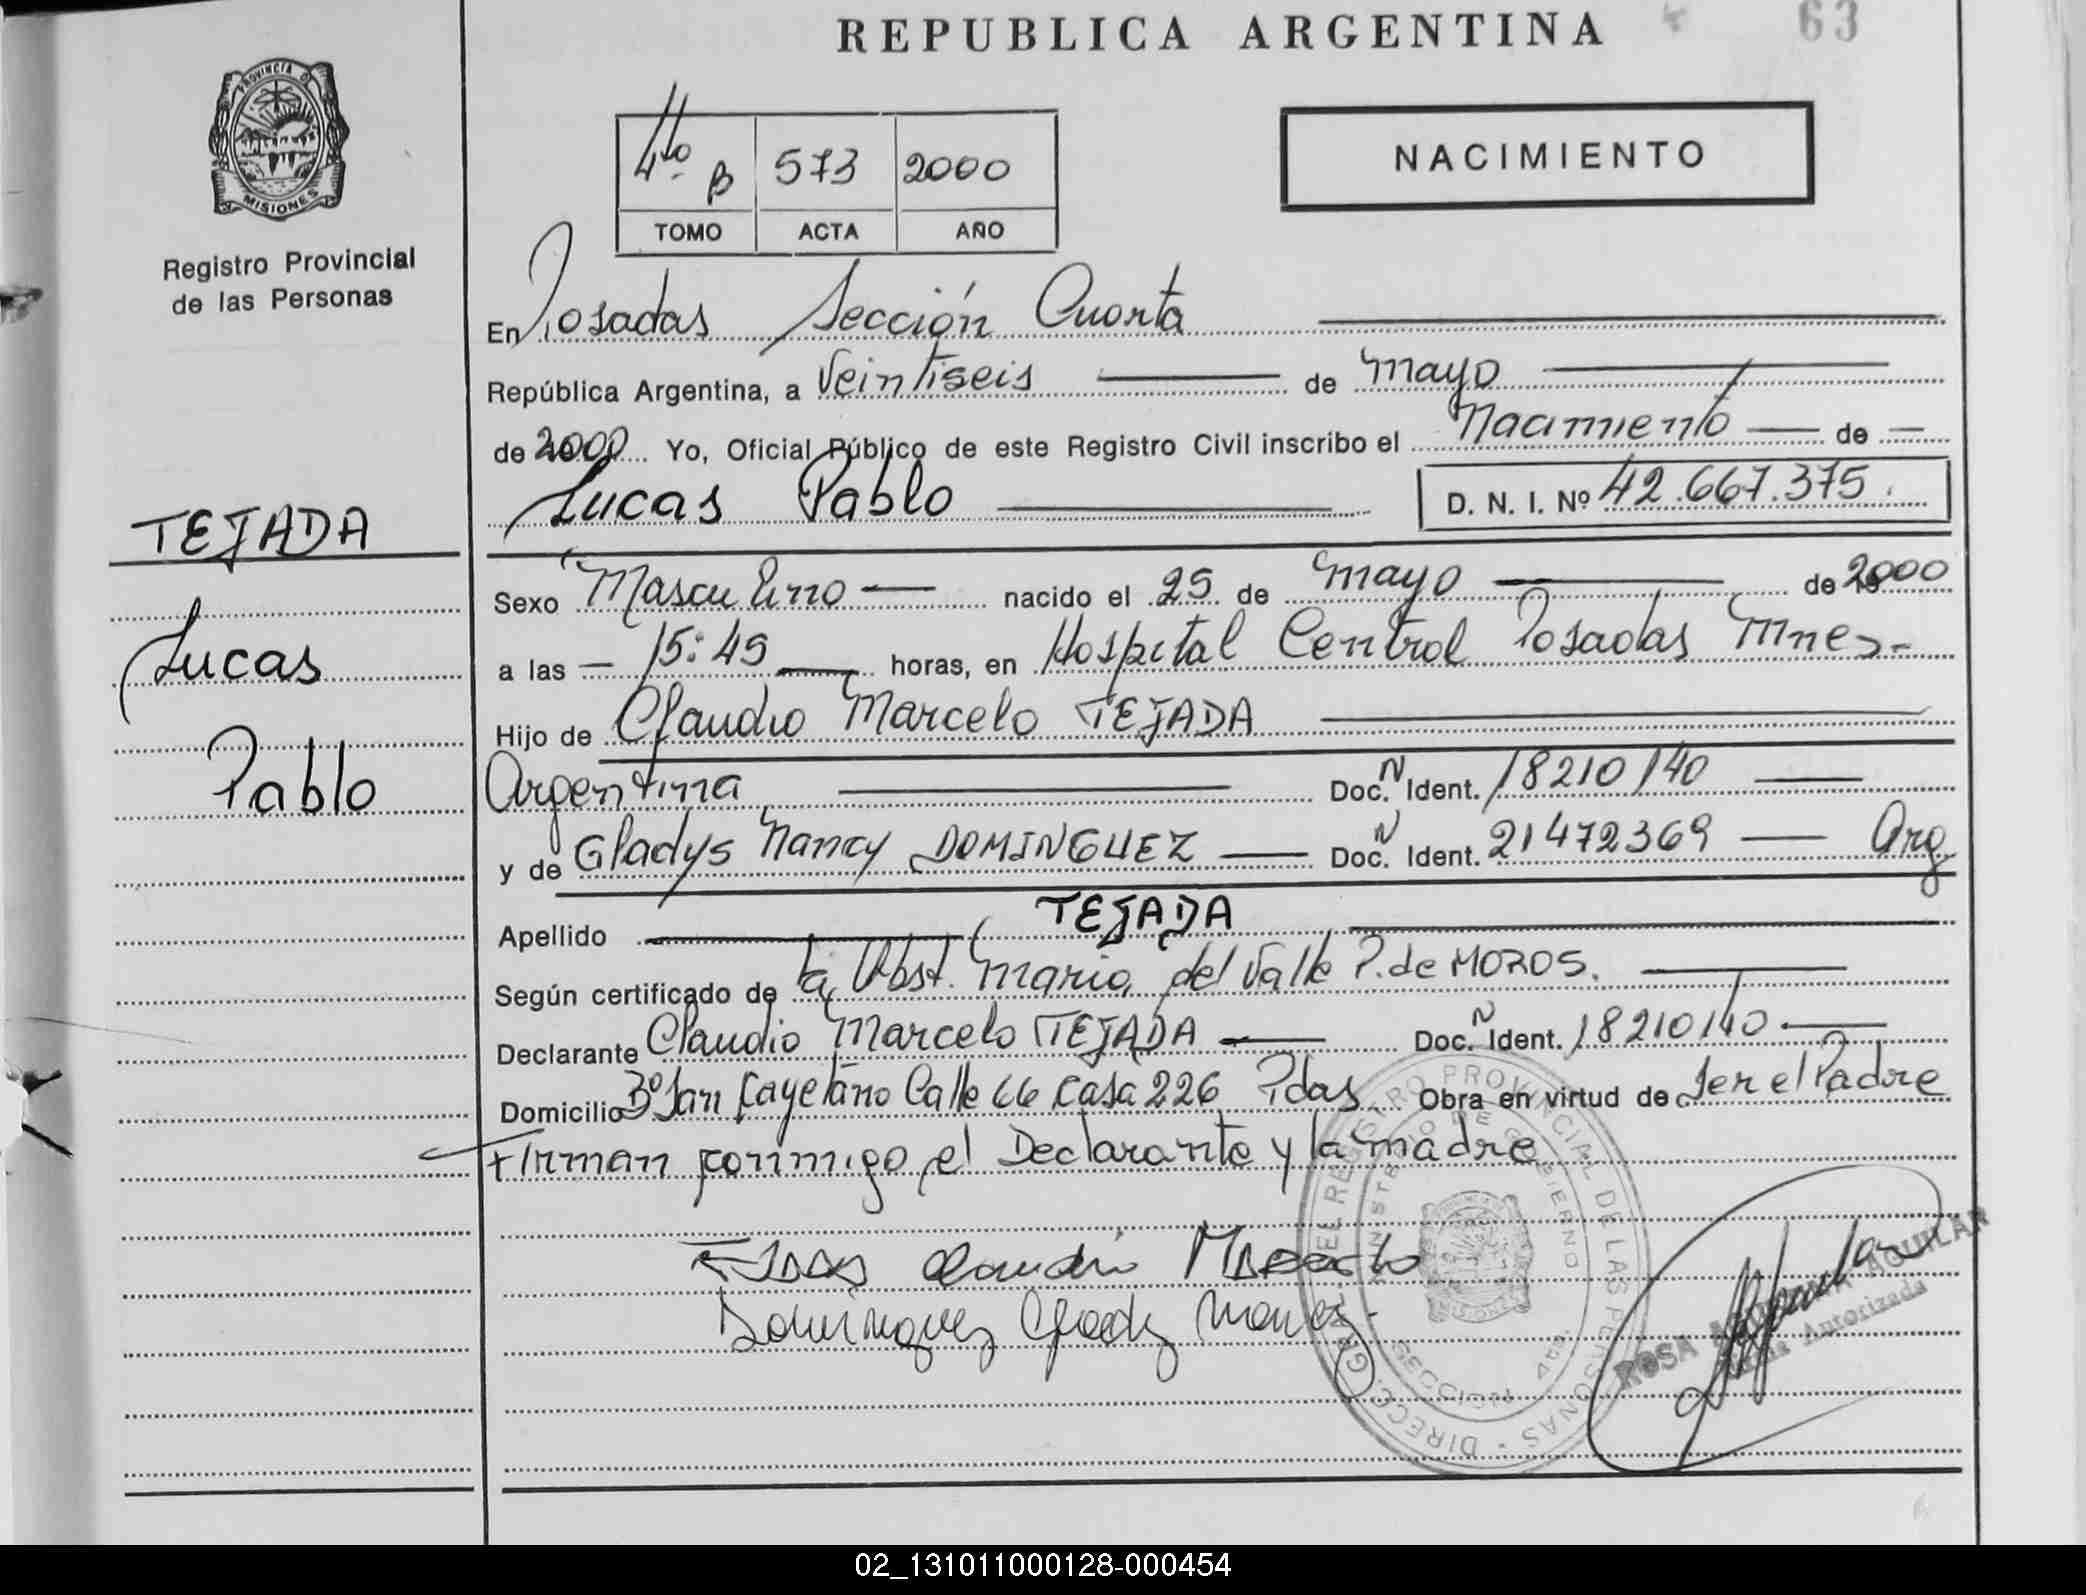 REPUBLICA ARGENTINA
63
PROVINCIA DE
MISIONES
Registro Provincial
de las Personas
4to B 573 2000
TOMO ACTA AÑO
NACIMIENTO
En Posadas Sección Cuarta
República Argentina, a Veintiseis de Mayo
de 2000 Yo, Oficial Público de este Registro Civil inscribo el Nacimiento de
Lucas Pablo D. N. I. Nº 42.667.375
TEJADA
Lucas
Pablo
Sexo Masculino nacido el 25 de Mayo de 2000
a las 15:45 horas, en Hospital Central Posadas Mnes-
Hijo de Claudio Marcelo TEJADA
Argentina Doc. N Ident. 18210140
y de Gladys Nancy DOMINGUEZ Doc. N Ident. 21472369 Arg
Apellido TEJADA
Según certificado de la Obst. Maria del Valle P. de MOROS.
Declarante Claudio Marcelo TEJADA Doc. N Ident. 18210140
Domicilio Bº San Cayetano Calle 66 Casa 226 Pdas Obra en virtud de Ser el Padre
Firman conmigo el Declarante y la Madre
Claudio Marcelo
Dominguez Gladys Nancy
DIRECC. GRAL. DEL REGISTRO PROVINCIAL DE LAS PERSONAS
MINISTERIO DE GOBIERNO
SECCION 4ta.
ROSA AGUILAR
Autorizada
02_131011000128-000454